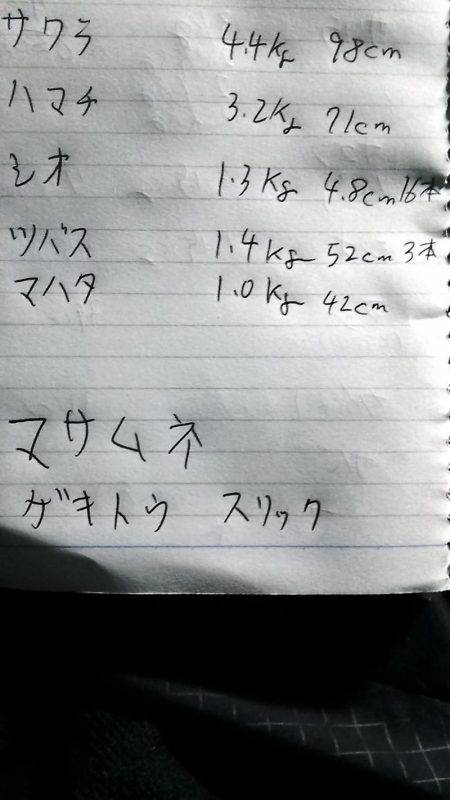 サワラ 4.4kg 98cm
ハマチ 3.2kg 71cm
シオ 1.3kg 4.8cm 16本
ツバス 1.4kg 52cm 3本
マハタ 1.0kg 42cm
マサムネ
ゲキトウ スリック